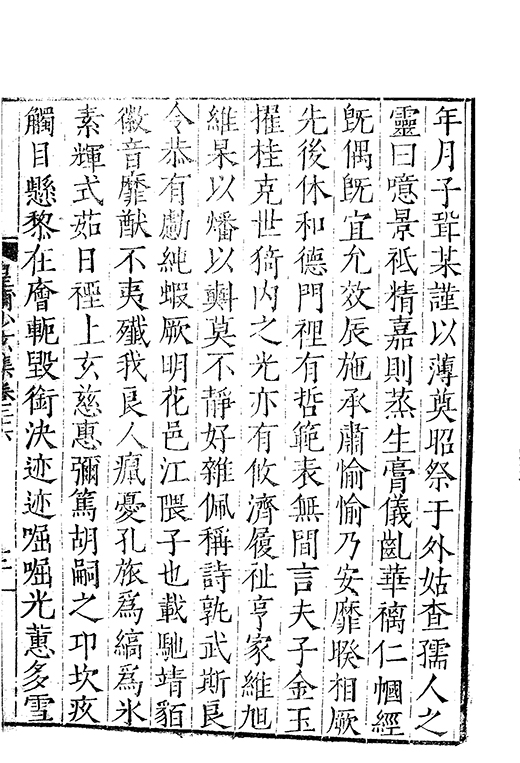 年月子壻某謹以薄奠昭祭于外姑查孺人之
靈曰噫景祗精嘉則蒸生膏儀齔華褵仁幗經
旣偶旣宜允效辰施承肅愉愉乃安靡暌相厥
先後休和德門裡有哲範表無間言夫子金玉
擢桂克世猗内之光亦有攸濟履祉亨家維旭
維杲以燔以𣂏莫不靜好雜佩稱詩孰武斯良
令恭有勵純蝦厥明花邑江隈子也載馳靖貊
徽音靡猷不夷殲我良人癙憂孔旅爲縞爲氷
素輝式茹日禋上玄慈惠彌篤胡嗣之卭坎疚
觸目懸黎在㢑軛毀銜決迹迹啒啒光蕙多雪
集卷三六